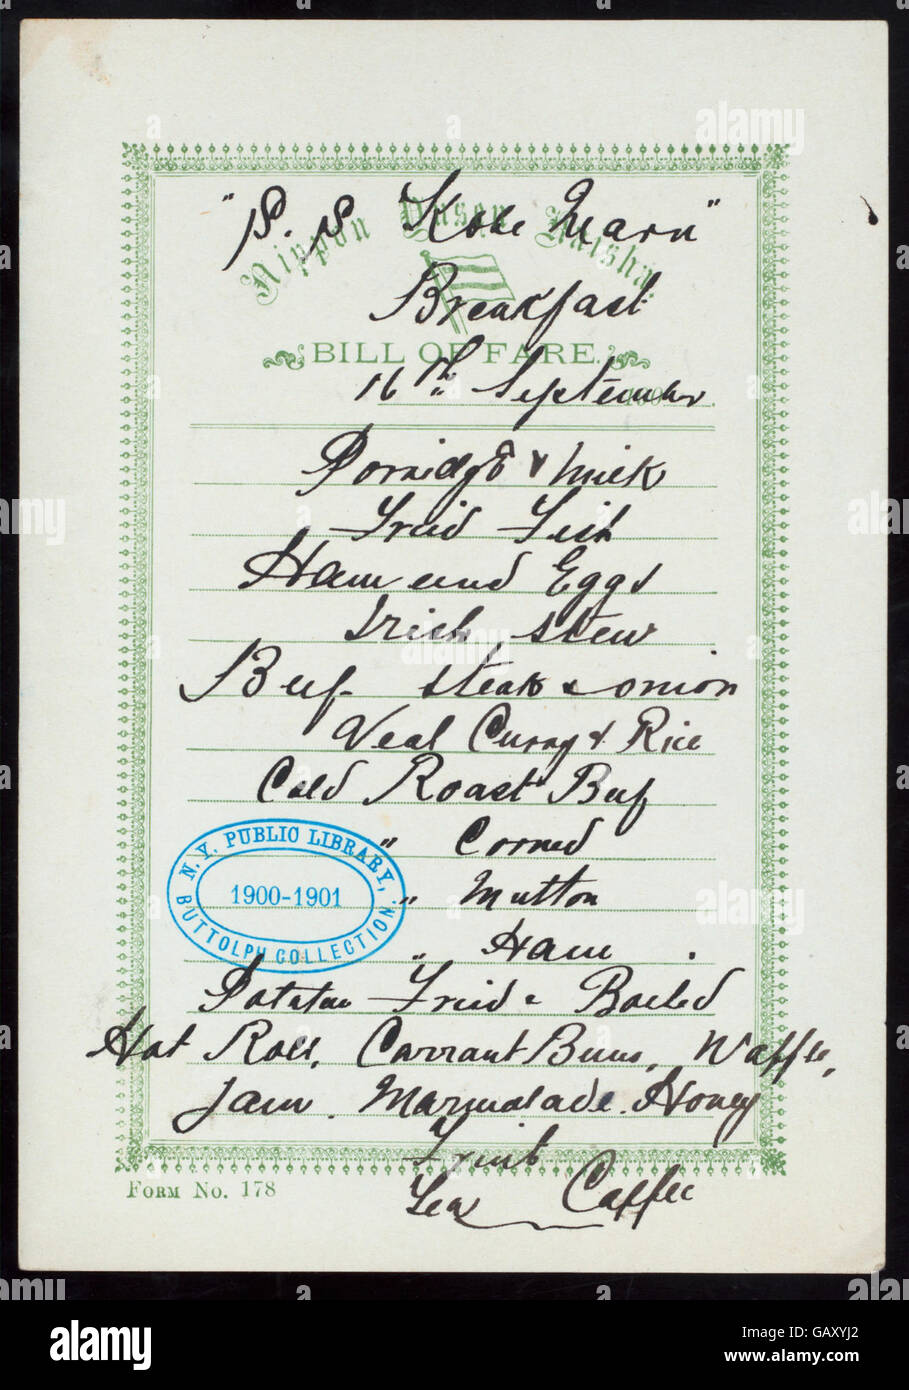 "S. S Kobe Maru"
Nippon Yusen Kaisha
Breakfast
BILL OF FARE.
16th September
Porridge & Milk
Fried Fish
Ham and Eggs
Irish Stew
Beef steak & onion
Veal Curry & Rice
Cold Roast Beef
" Corned
" Mutton
" Ham
Potatoe Fried & Boiled
Hot Rolls, Currant Buns, Waffle,
Jam. Marmalade. Honey
Fruit
Tea Caffee
FORM NO. 178
N.Y. PUBLIC LIBRARY,
1900-1901
BUTTOLPH COLLECTION.
alamy
alamy stock photo
Image ID: GAXYJ2
www.alamy.com